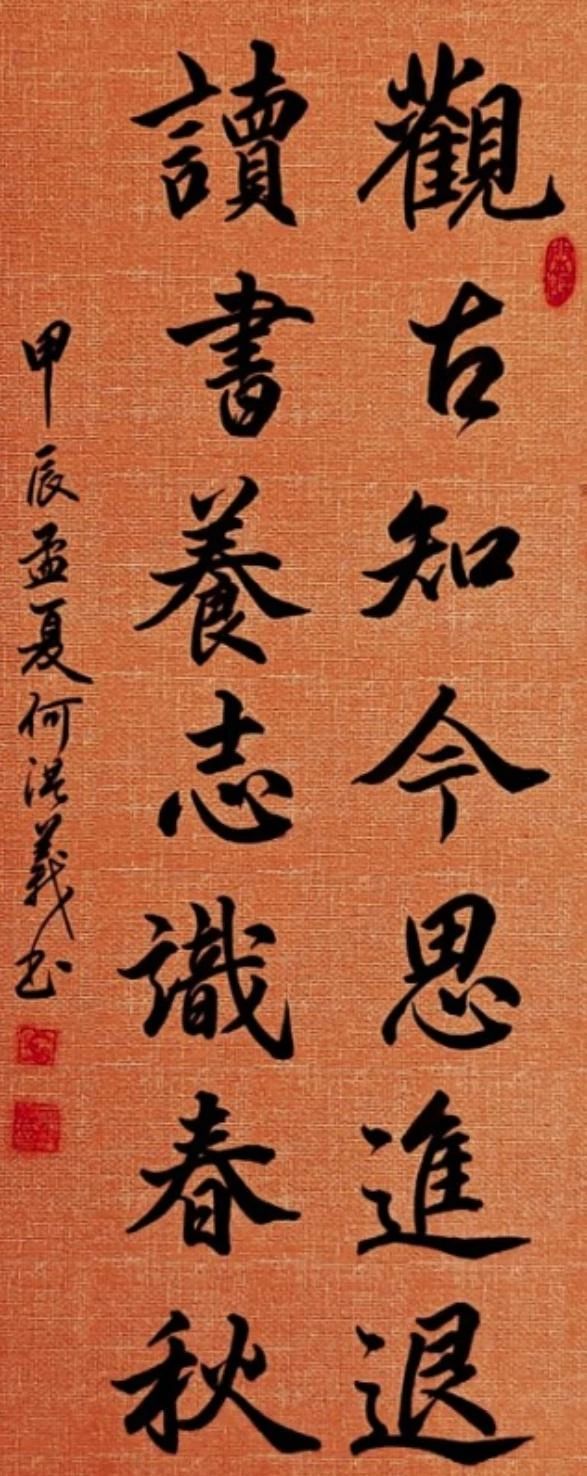 觀古知今思進退
讀書養志識春秋
甲辰孟夏何洪義书